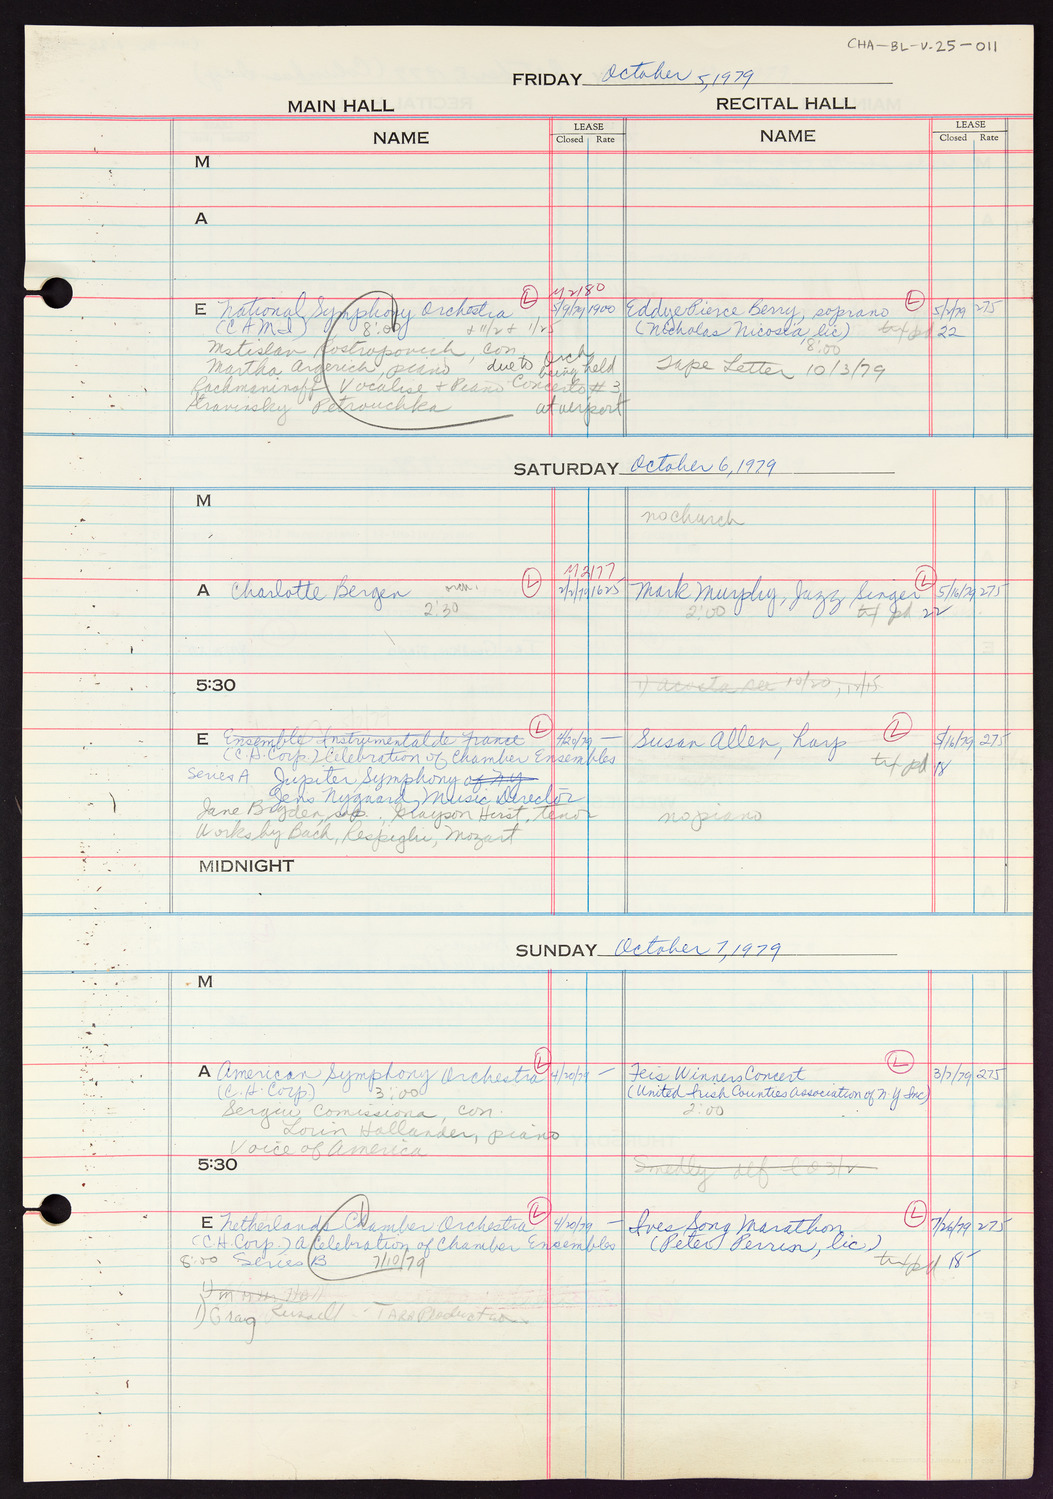 CHA-BL-V.25-011
FRIDAY October 5, 1979
MAIN HALL
RECITAL HALL
NAME
LEASE
Closed Rate
NAME
LEASE
Closed Rate
M
A
M2180
E National Symphony Orchestra L 5/9/79 1900
(CAMI) 8:00 + 11/2 + 1/25
Mstislav Rostropovich, con.
Martha Argerich, piano due to Orch being held
Rachmaninoff Vocalise + Piano Concerto # 3
Stravinsky Petrouchka at airport
Eddye Pierce Berry, soprano L 5/2/79 275
(Nicholas Nicosia lic) txf pd 22
8:00
Tape Letter 10/3/79
SATURDAY October 6, 1979
M
no church
M2177
A Charlotte Bergen L 2/2/79 1625
2:30
Mark Murphy, Jazz Singer L 5/16/79 275
2:00 txf pd 22
5:30
1) Acosta see 10/20, 12/15
E Ensemble Instrumental de France L 4/20/79 —
(C.H. Corp.) Celebration of Chamber Ensembles
Series A Jupiter Symphony of N.Y.
Jens Nygaard, Music Director
Jane Bryden, sop., Grayson Hirst, tenor
Works by Bach, Respighi, Mozart
Susan Allen, harp L 5/16/79 275
txf pd 18
no piano
MIDNIGHT
SUNDAY October 7, 1979
M
A American Symphony Orchestra L 4/20/79 —
(C.H. Corp) 3:00
Sergiu Comissiona, con.
Lorin Hollander, piano
Voice of America
Feis Winners Concert L 3/7/79 275
(United Irish Counties Association of N.Y. Inc)
2:00
5:30
E Netherlands Chamber Orchestra L 4/20/79 —
(C.H. Corp.) A Celebration of Chamber Ensembles
8:00 Series B 7/10/79
1) Craig Russell - TARA Productions
Ives Song Marathon L 7/26/79 275
(Peter Perrin, lic)
txf pd 18